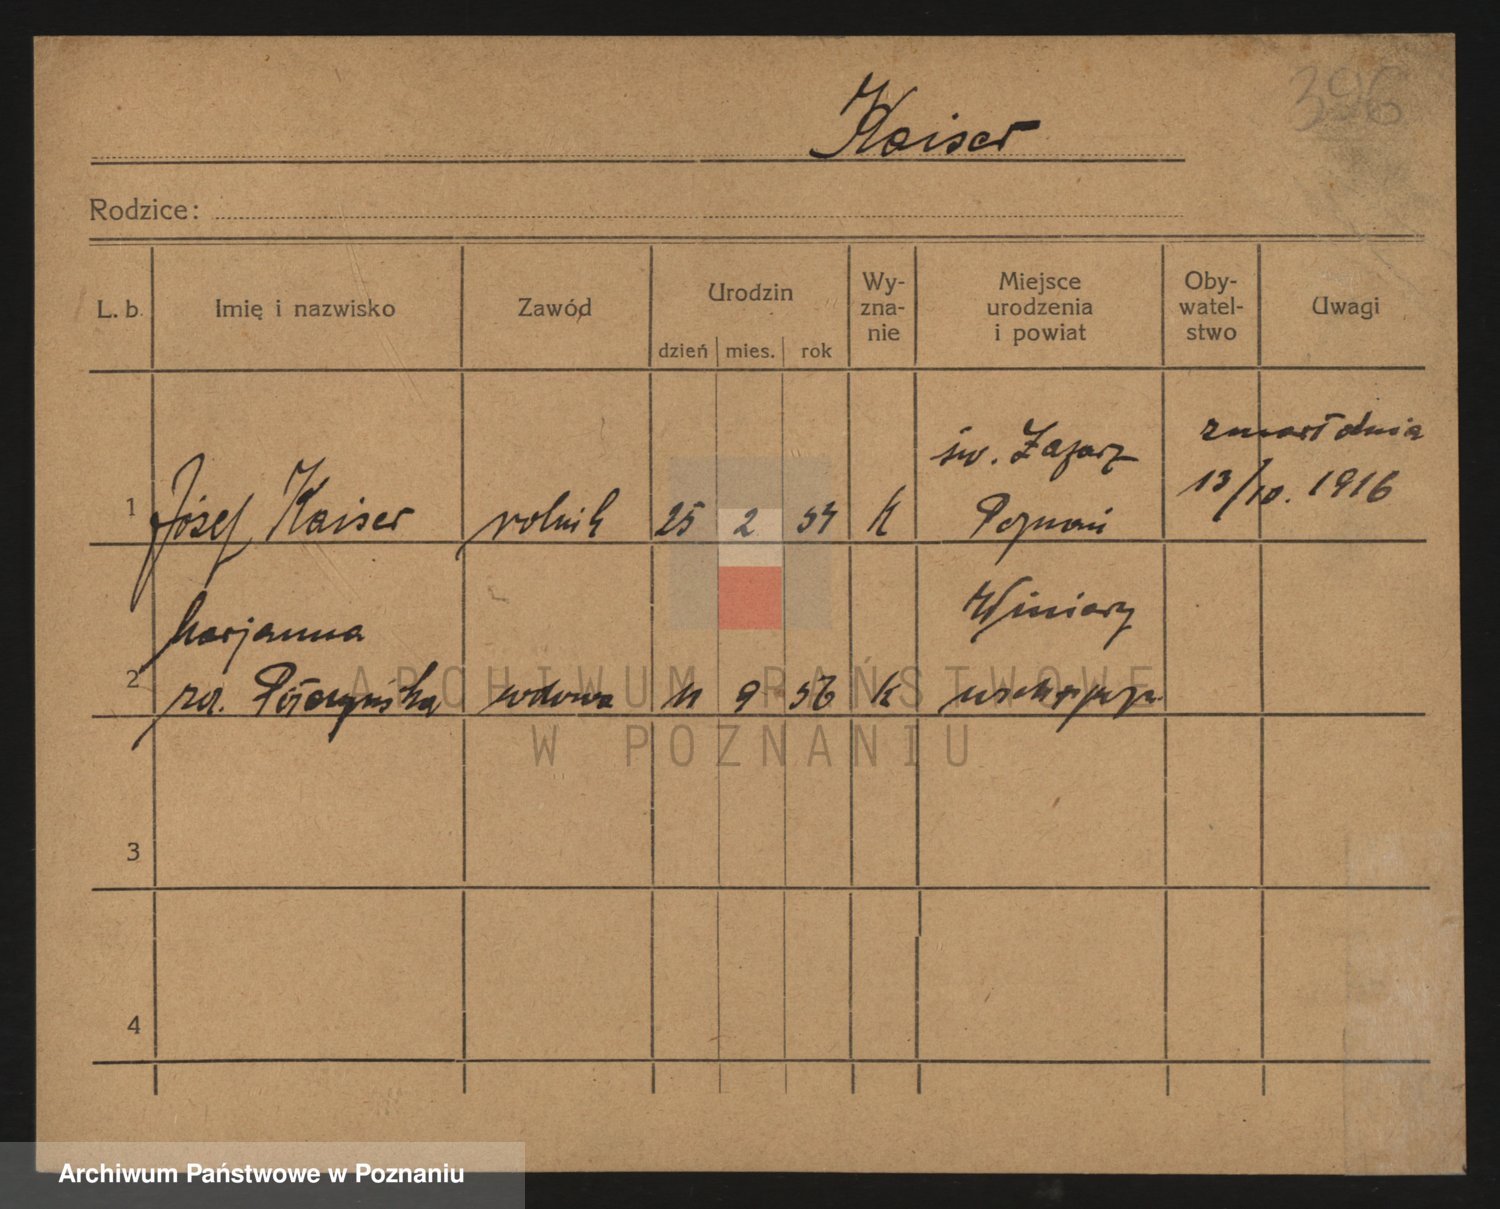 396
Kaiser
Rodzice:
L. b. Imię i nazwisko Zawód Urodzin Wy-zna-nie Miejsce urodzenia i powiat Oby-watel-stwo Uwagi
dzień mies. rok
św. Łazarz zmarł dnia
1 Józef Kaiser rolnik 25 2 54 K Poznań 13/10. 1916
Marjanna Winiary
2 wdowa 11 9 56 K
3
4
ARCHIWUM PAŃSTWOWE
W POZNANIU
Archiwum Państwowe w Poznaniu